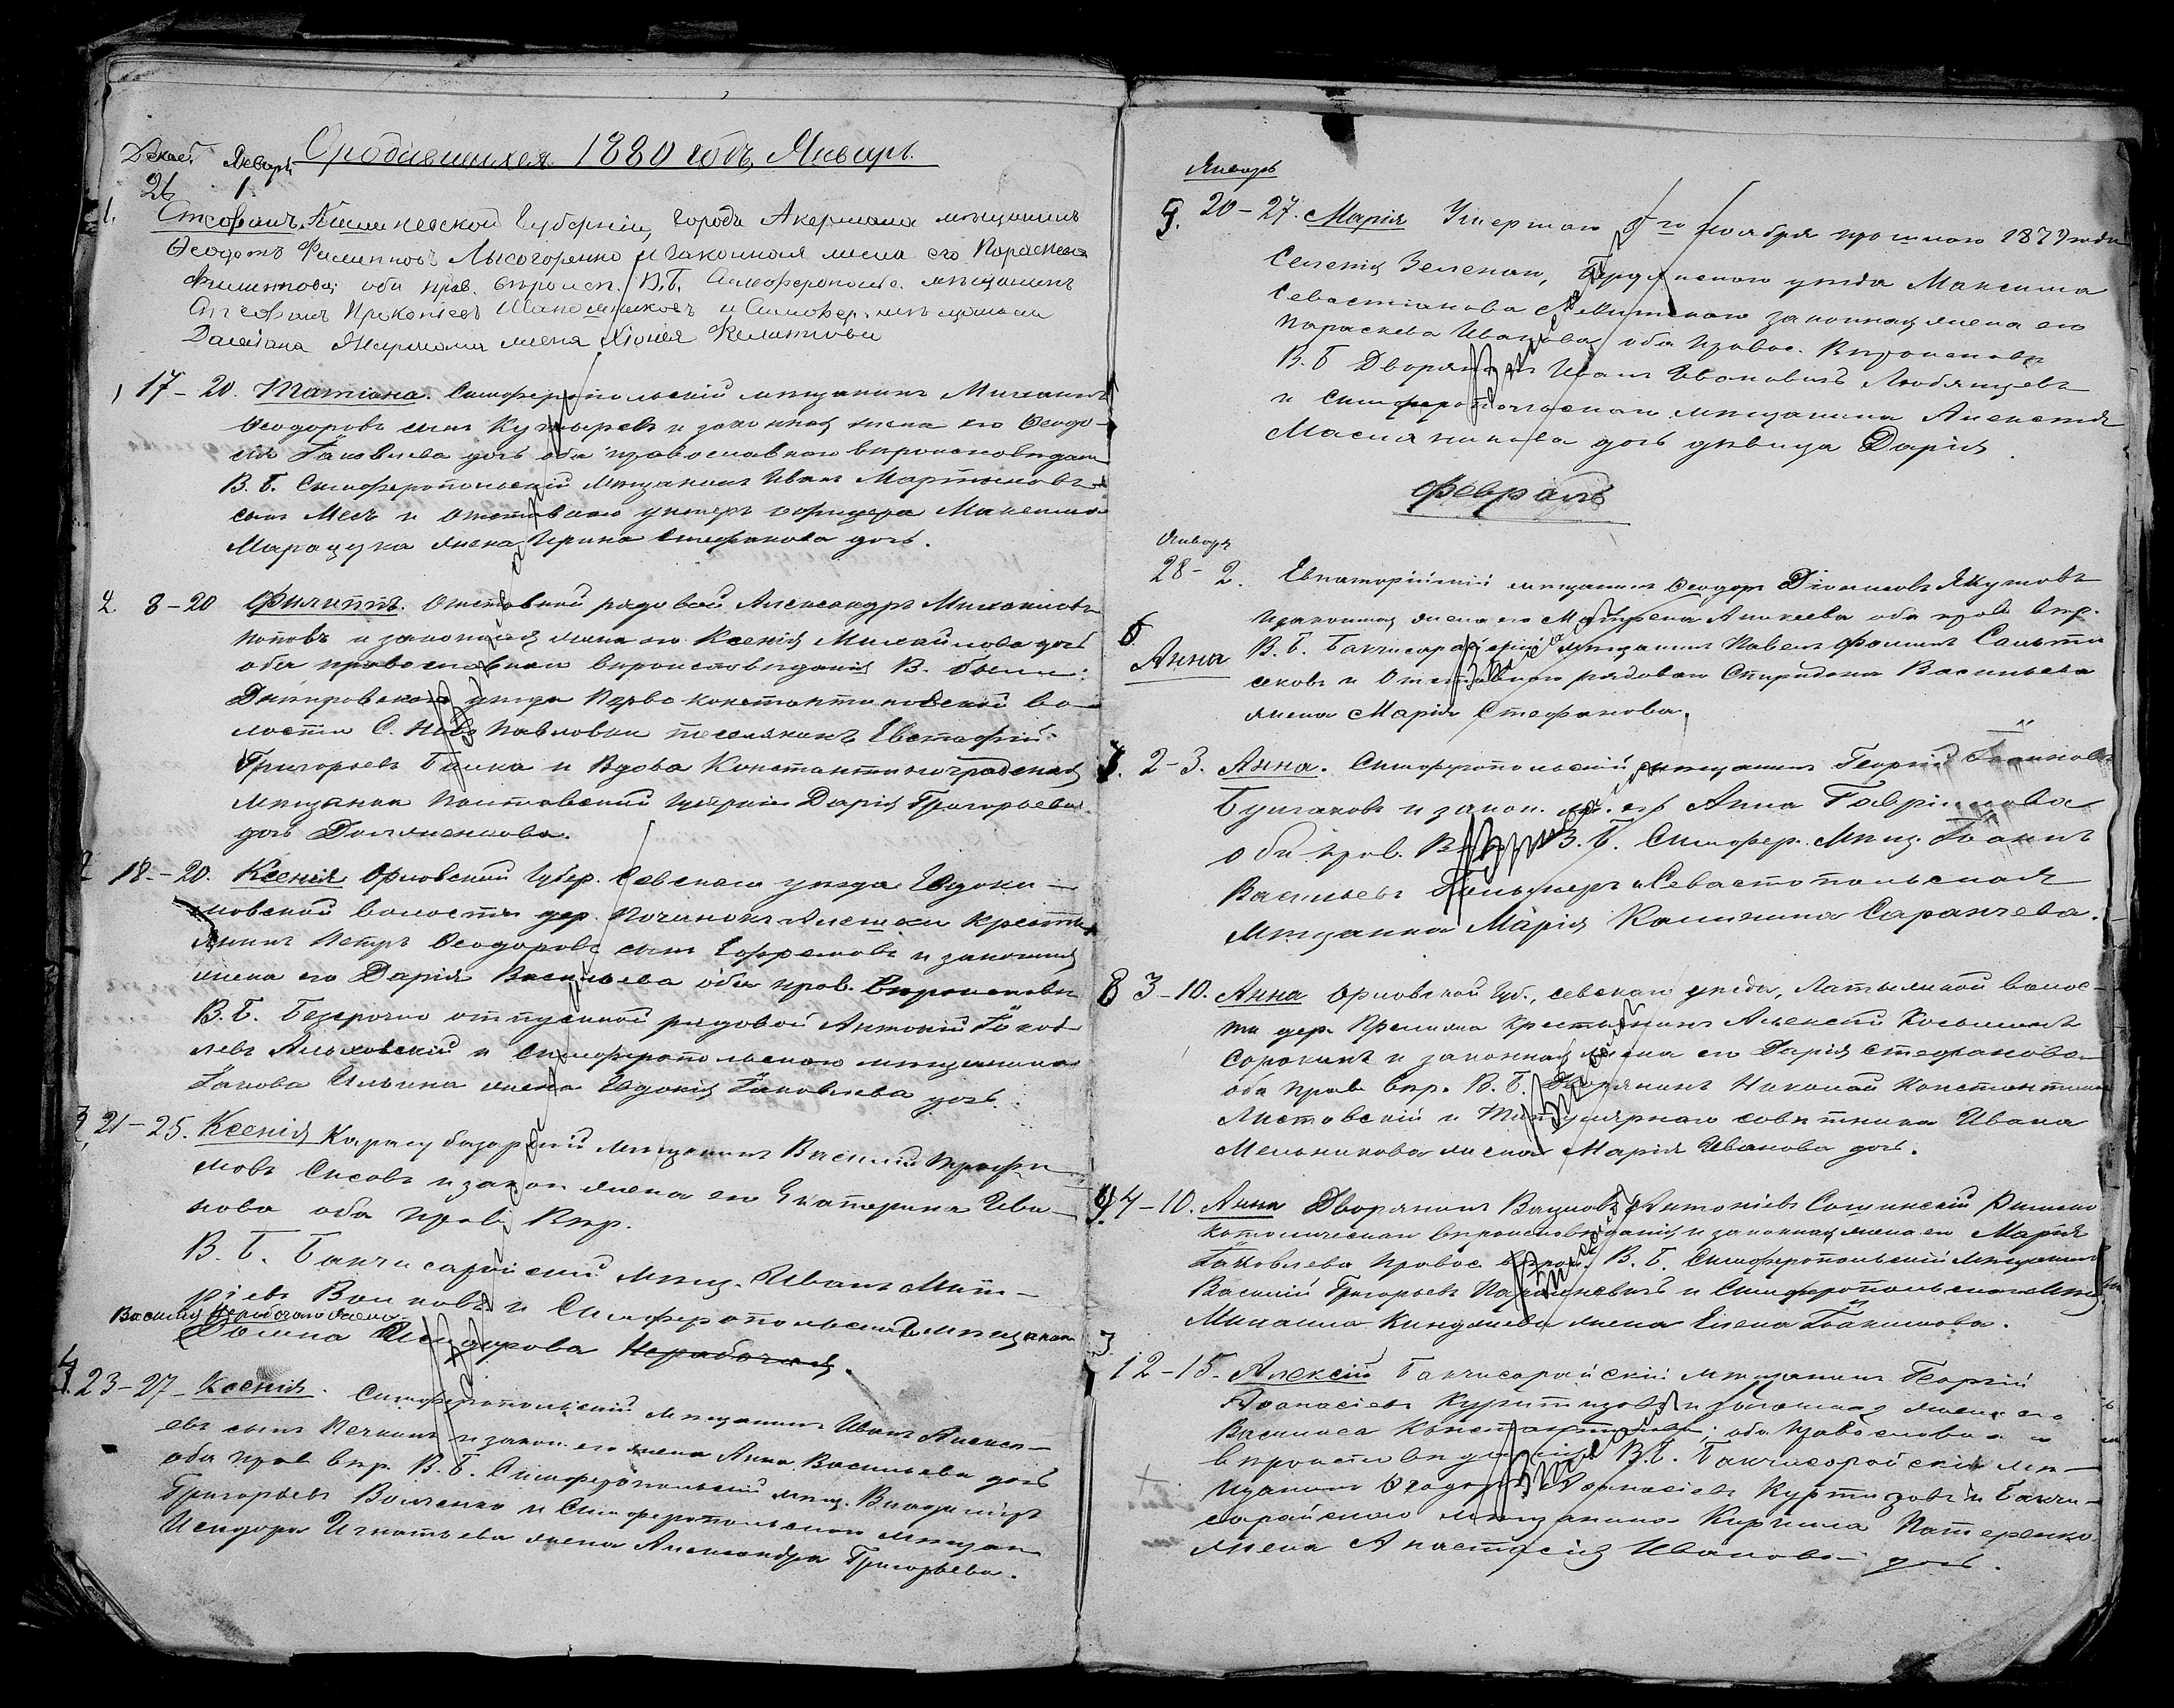 О родившихся 1880 годъ Январь.
Декаб. Январь
26 1
1. Стефанъ. Кишиневской Губерніи, города Акермана мѣщанинъ
Ѳеодотъ Филиповъ Лысогоренко и законная жена его Параскева
Филиппова; оба прав. вѣроисп. В.Б. Симферопольс. мѣщанинъ
Стефанъ Прокопіевъ и Симфер. мѣщанина
Даміана жена Хіонія Филиппова
1 17-20. Татіана. Симферопольскій мѣщанинъ Михаилъ
Ѳеодоровъ сынъ Кутыревъ и законная жена его Ѳеодо-
сія Іаковлева дочь оба православнаго вѣроисповѣданія
В.Б. Симферопольскій мѣщанинъ Иванъ Мартыновъ
сынъ Мель и отставнаго унтеръ офицера Максима
Марацука жена Ирина Стефанова дочь.
2 8-20 Филиппъ. Отставной рядовой Александръ Михаиловъ
Поповъ и законная жена его Ксенія Михайлова дочь
оба православнаго вѣроисповѣданія В. были:
Днѣпровскаго уѣзда Первоконстантиновской во-
лости С. Ново Павловки поселянинъ Евстафій
Григорьевъ Баика и Вдова Константиноградская
мѣщанка Полтавской губерніи Дарія Григорьева
дочь Долженкова.
2 18-20. Ксенія Орловской Губер. Севскаго уѣзда Евдоки-
мовской волости дер. Починокъ Алешки крестья
янинъ Петръ Ѳеодоровъ сынъ Ефремовъ и законная
жена его Дарія Васильева оба прав. вѣроисповѣ
В.Б. Безсрочно отпускной рядовой Антоній Іаков
левъ Альховскій и Симферопольскаго мѣщанина
Іакова Ильина жена Евдокія Іаковлева дочь.
3, 21-25. Ксенія Карасубазарскій мѣщанинъ Василій Трофи
мовъ Сисовъ и закон жена его Екатерина Ива-
нова оба прав. Вѣр.
В.Б. Бахчисарайскій мѣщ. Иванъ Мит-
ріевъ Волковъ и Симферопольскаго мѣщанина
Василія Нерабочаго жена
Домна Исидорова Нерабочая.
4. 23-27- Ксенія. Симферопольскій мѣщанинъ Иванъ Алексе-
евъ сынъ Кечкинъ и закон. его жена Анна Васильева дочь
оба прав вѣр. В.Б. Симферопольскій мѣщ. Владиміръ
Григорьевъ Волченко и Симферопольскаго мѣщан
Исидора Игнатьева жена Александра Григорьева.
Январь
5. 20-27. Марія Умершаго 5го Ноября прошлаго 1879 года
Селенія Зеленаго, Бердянскаго уѣзда Максима
Севастіанова Никитскаго законная жена его
Параскева Иванова, оба Правос. Вѣроисповѣ
В.Б Дворянинъ Иванъ Ивановичъ Любянцевъ
и Симферопольскаго мѣщанина Алексѣя
Масляникова дочь дѣвица Дарія.
Февраль
Января
28-2. Евпаторійскій мѣщанинъ Ѳеодоръ Діонисовъ Якутовъ
и законная жена его Матрена Алексеева оба прав. вѣр.
6
Анна
В.Б. Бахчисарайскій мѣщанинъ Павелъ Фоминъ Салыти
сековъ и Отставнаго рядоваго Спиридона Васильева
жена Марія Стефанова.
7. 2-3. Анна. Симферопольскій мѣщанинъ Георгій Іоанновъ
Булгаковъ и закон. ж. его Анна Гавріилова
оба прав. Вѣр. В.Б. Симфер. Мѣщ. Іоаннъ
Васильевъ и Севастопольская
мѣщанка Марія Калинина Саранчева.
8 3-10. Анна Орловской губ., севскаго уѣзда, Лятышской волос-
ти дер. крестьянинъ Алексій Косьминъ
Сорокинъ и законная жена его Дарія Стефанова
оба прав вѣр. В.Б. Дворянинъ Николай Константиновъ
Листовскій и Титулярнаго совѣтника Ивана
Мельникова жена Марія Иванова дочь.
9. 4-10. Анна Дворянинъ Вацлавъ Антоніевъ Сошинскій Римско
католическаго вѣроисповѣданія и законная жена его Марія
Іаковлева Правос. вѣрои. В.Б. Симферопольскій мѣщанинъ
Василій Григорьевъ и Симферопольскаго мѣщ
Михаила Киндякова жена Елена Іоакимова.
3
12-15. Алексій Бахчисарайскій мѣщанинъ Георгій
Аѳанасіевъ Куртицовъ и законная жена его
Василиса Константинова; оба Православнаго
вѣроисповѣданія В.Б. Бахчисарайскій мѣ-
щанинъ Ѳеодоръ Аѳанасіевъ Куртицовъ и Бахчи-
сарайскаго мѣщанина Кирилла Патеренко
жена Анастасія Иванова дочь.